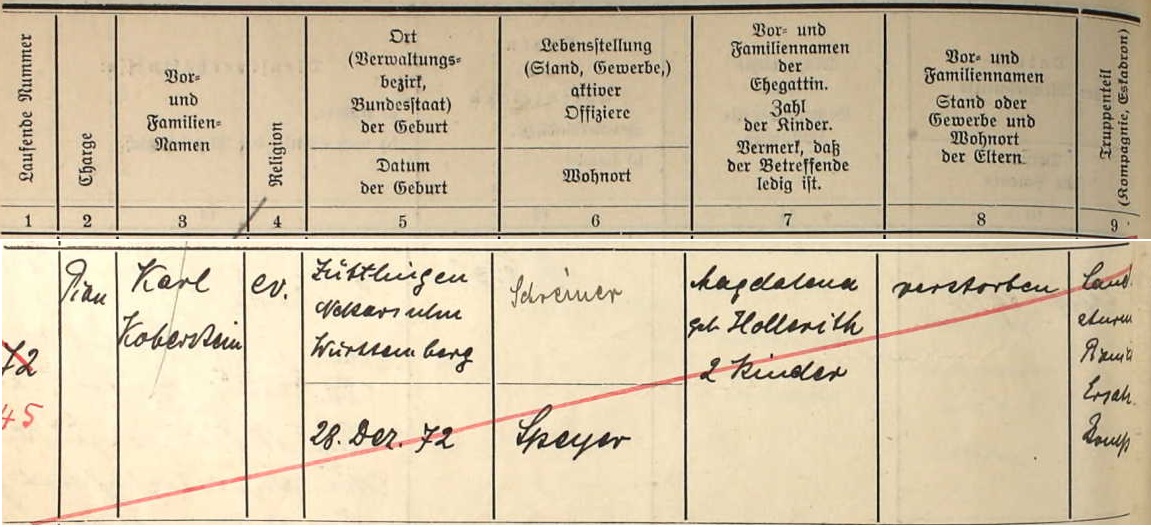 Laufende Nummer
Charge
Vor-
und
Familien-
Namen
Religion
Ort
(Verwaltungs-
bezirk,
Bundesstaat)
der Geburt
Datum
der Geburt
Lebensstellung
(Stand, Gewerbe,)
aktiver
Offiziere
Wohnort
Vor- und
Familiennamen
der
Ehegattin.
Zahl
der Kinder.
Vermerk, daß
der Betreffende
ledig ist.
Vor- und
Familiennamen
Stand oder
Gewerbe und
Wohnort
der Eltern
Truppenteil
(Kompagnie, Eskadron)
1 2 3 4 5 6 7 8 9
72
45
Pion
Karl
Koberstein
ev.
Züttlingen
Neckarsulm
Württemberg
28. Dez. 72
Schreiner
Speyer
Magdalena
geb. Hollerith
2 Kinder
verstorben
Land.
sturm
Pionier
Ersatz.
Komp